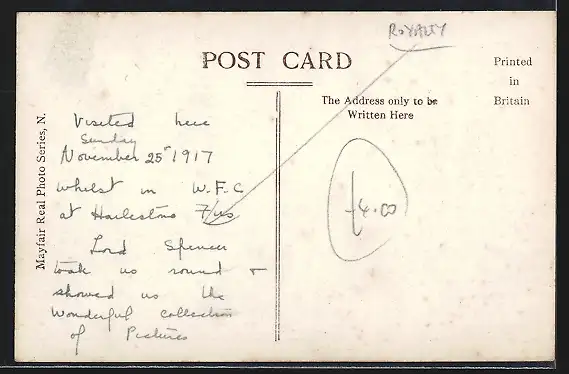 ROYALTY
POST CARD
Printed
in
Britain
The Address only to be
Written Here
Mayfair Real Photo Series, N.
Visited here
Sunday
November 25th 1917
whilst in W.F.C
at Harlestone
Lord Spencer
took us round &
showed us the
Wonderful collection
of Pictures
£4.00